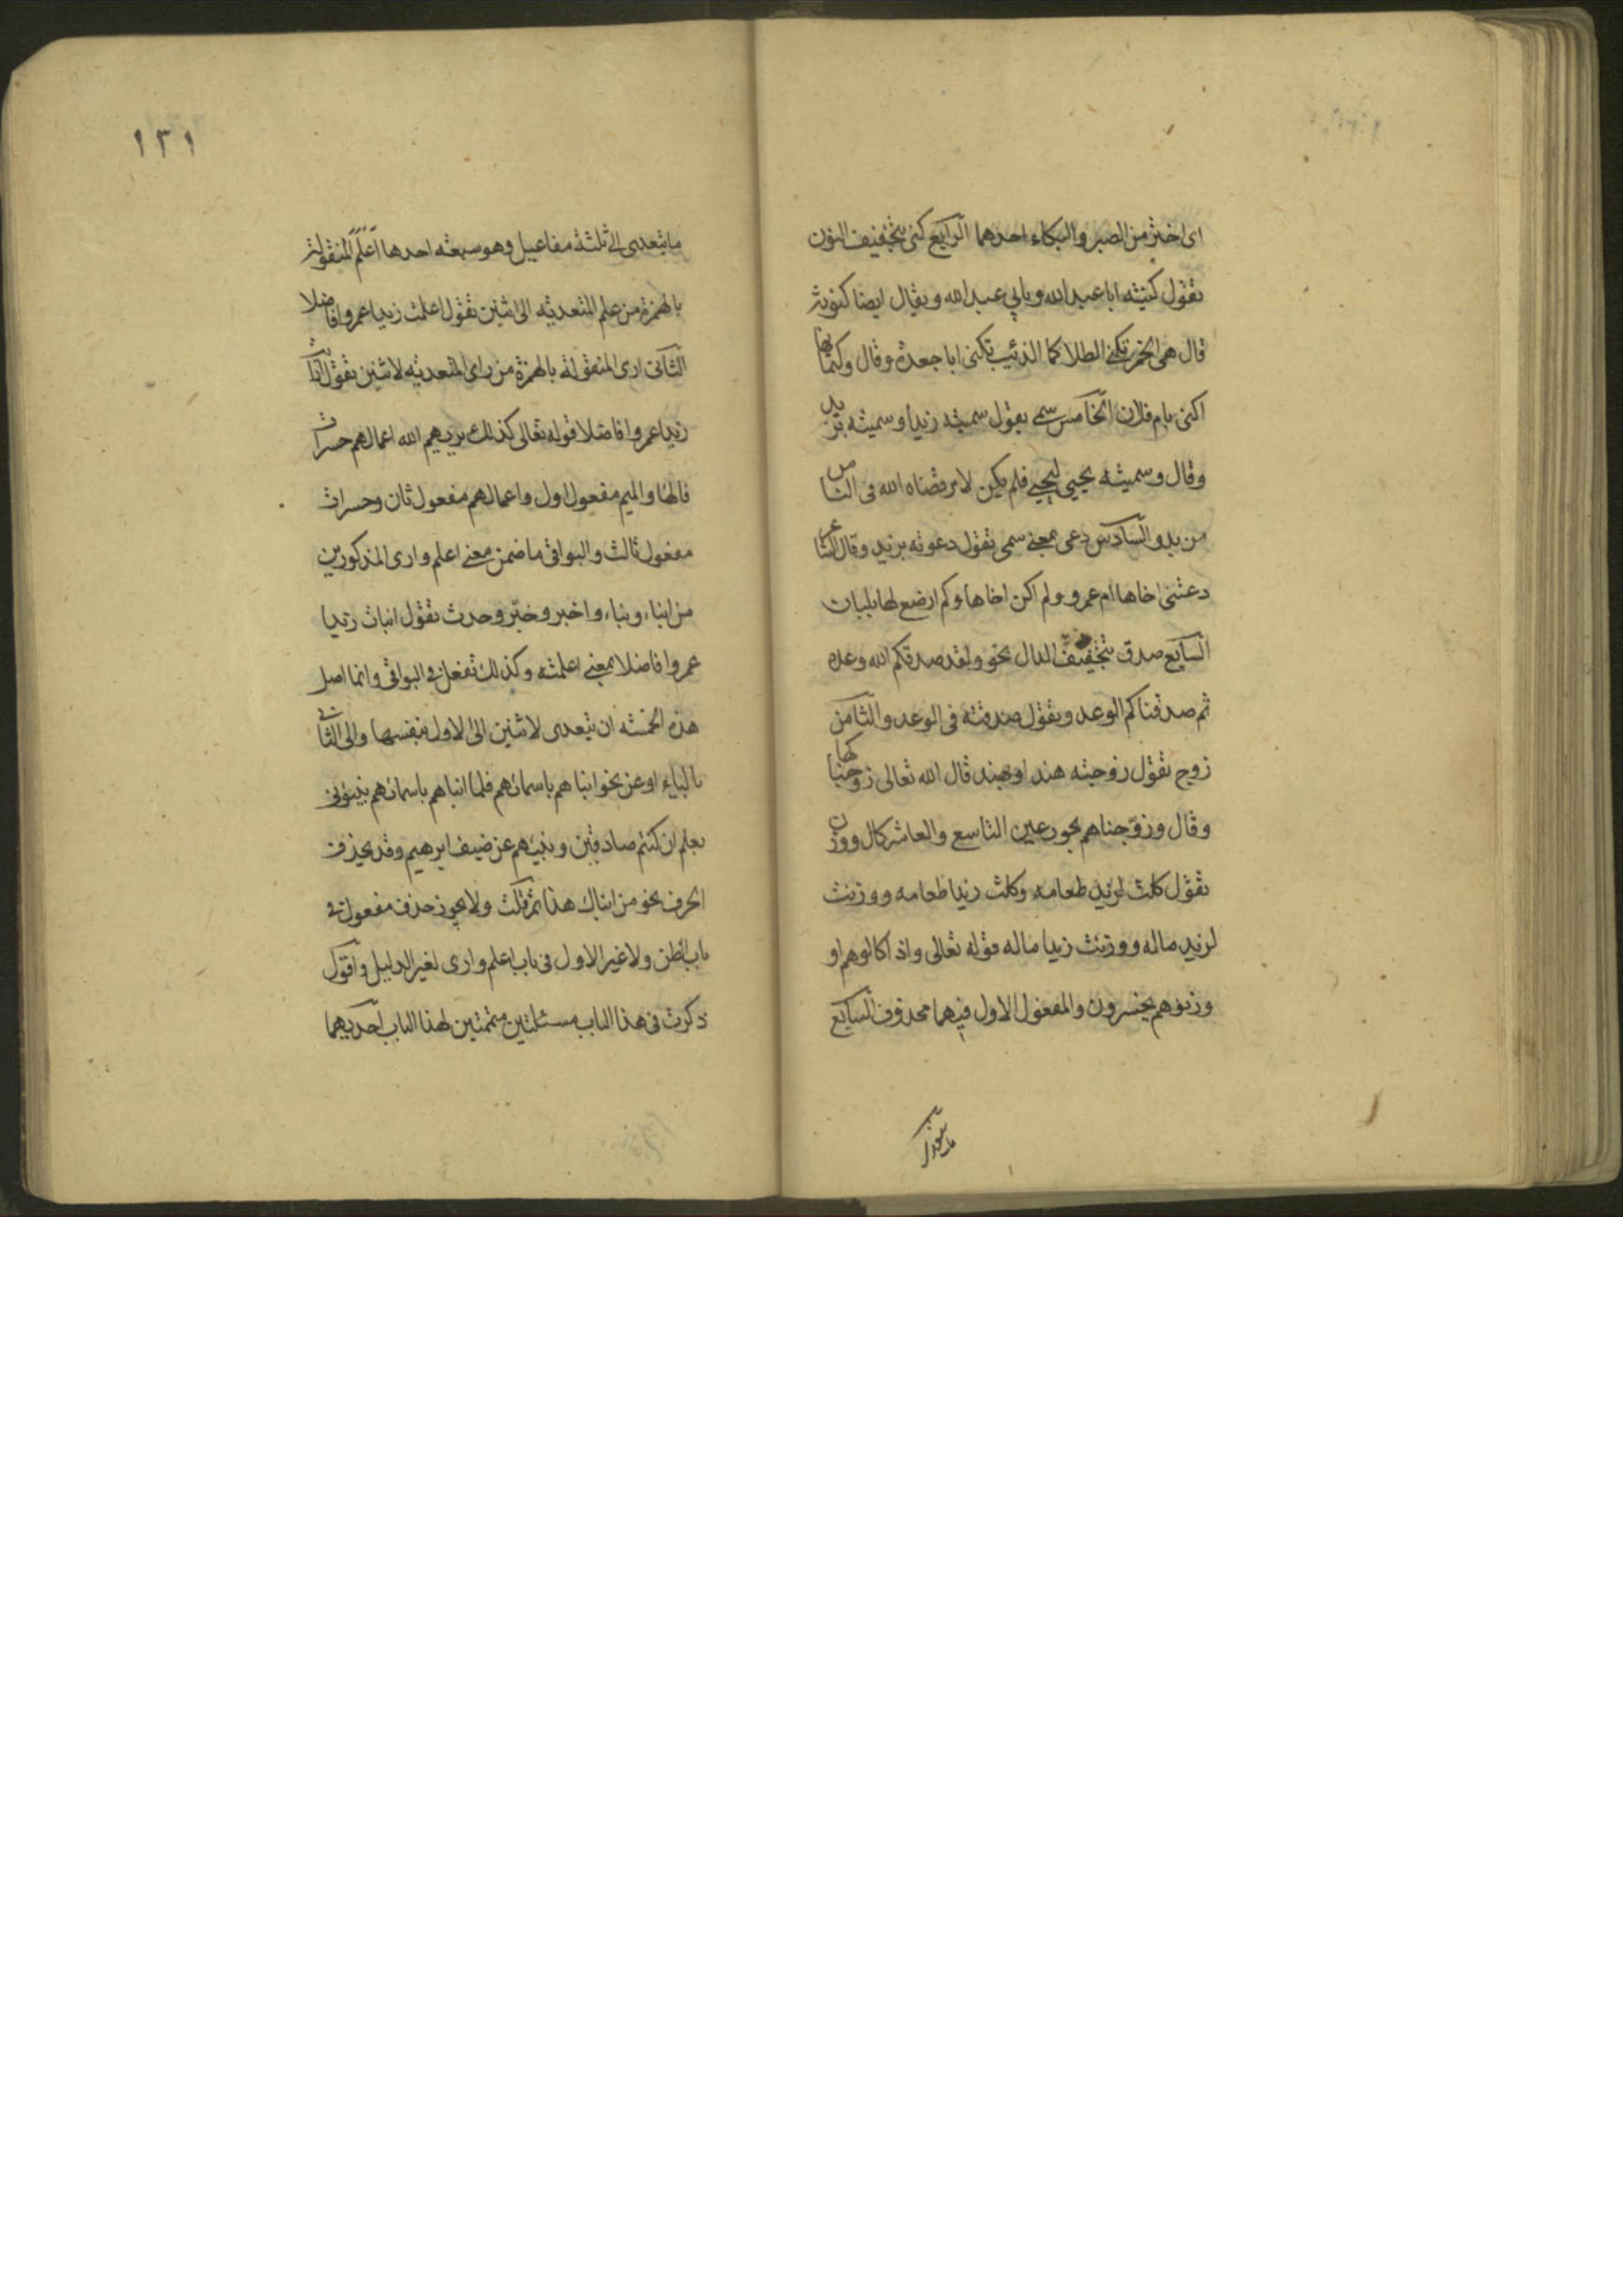 اى اختر من الصبر والبكاء احدهما الرابع كنى بتخفيف النون
تقول كنيته ابا عبد الله وبابي عبد الله ويقال ايضا كنوته
قال هى الخمر تكنى الطلا كما الذئب يكنى ابا جعدة وقال وكتمانها
اكنى بام فلان الخامس سمى تقول سميته زيدا وسميته بزيد
وقال وسميته يحيى ليحيى فلم يكن لامر قضاه الله فى الناس
من بد والسادس دعى بمعنى سمى تقول دعوته بزيد وقال الشاعر
دعتنى اخاها ام عمرو ولم اكن اخاها ولم ارضع لها بلبان
السابع صدق بتخفيف الدال نحو ولقد صدقكم الله وعده
ثم صدقناكم الوعد وتقول صدقته فى الوعد والثامن
زوج تقول زوجته هند او بهند قال الله تعالى زوجناكها
وقال وزوّجناهم بحور عين التاسع والعاشر كال ووزن
تقول كلت لزيد طعامه وكلت زيدا طعامه ووزنت
لزيد ماله ووزنت زيدا ماله قوله تعالى واذا كالوهم او
وزنوهم يخسرون والمفعول الاول فيهما محذوف السابع
ما يتعدى
١٢١
ما يتعدى الى ثلثة مفاعيل وهو سبعة احدها اعلم المنقولة
بالهمزة من علم المتعدية الى اثنين تقول اعلمت زيدا عمروا فاضلا
الثانى ارى المنقولة بالهمزة من راى المتعدية لاثنين تقول اريت
زيدا عمروا فاضلا قوله تعالى كذلك يريهم الله اعمالهم حسرات
فالهاء والميم مفعول اول واعمالهم مفعول ثان وحسرات
مفعول ثالث والبواقى ما ضمن معنى اعلم وارى المذكورين
من انباء ونباء واخبر وخبّر وحدث تقول انبات زيدا
عمروا فاضلا بمعنى اعلمته وكذلك تفعل فى البواقى وانما اصل
هذه الخمسة ان يتعدى لاثنين الى الاول بنفسها والى الثانى
بالباء او عن نحو انباهم باسمائهم فلما انباهم باسمائهم نبئونى
بعلم ان كنتم صادقين ونبئهم عن ضيف ابرهيم وقد يحذف
الحرف نحو من انباك هذا ولا يجوز حذف مفعول فى
باب الظن ولا غير الاول فى باب اعلم وارى لغير الدليل واقول
ذكرت فى هذا الباب مسئلتين متممتين لهذا الباب احديهما